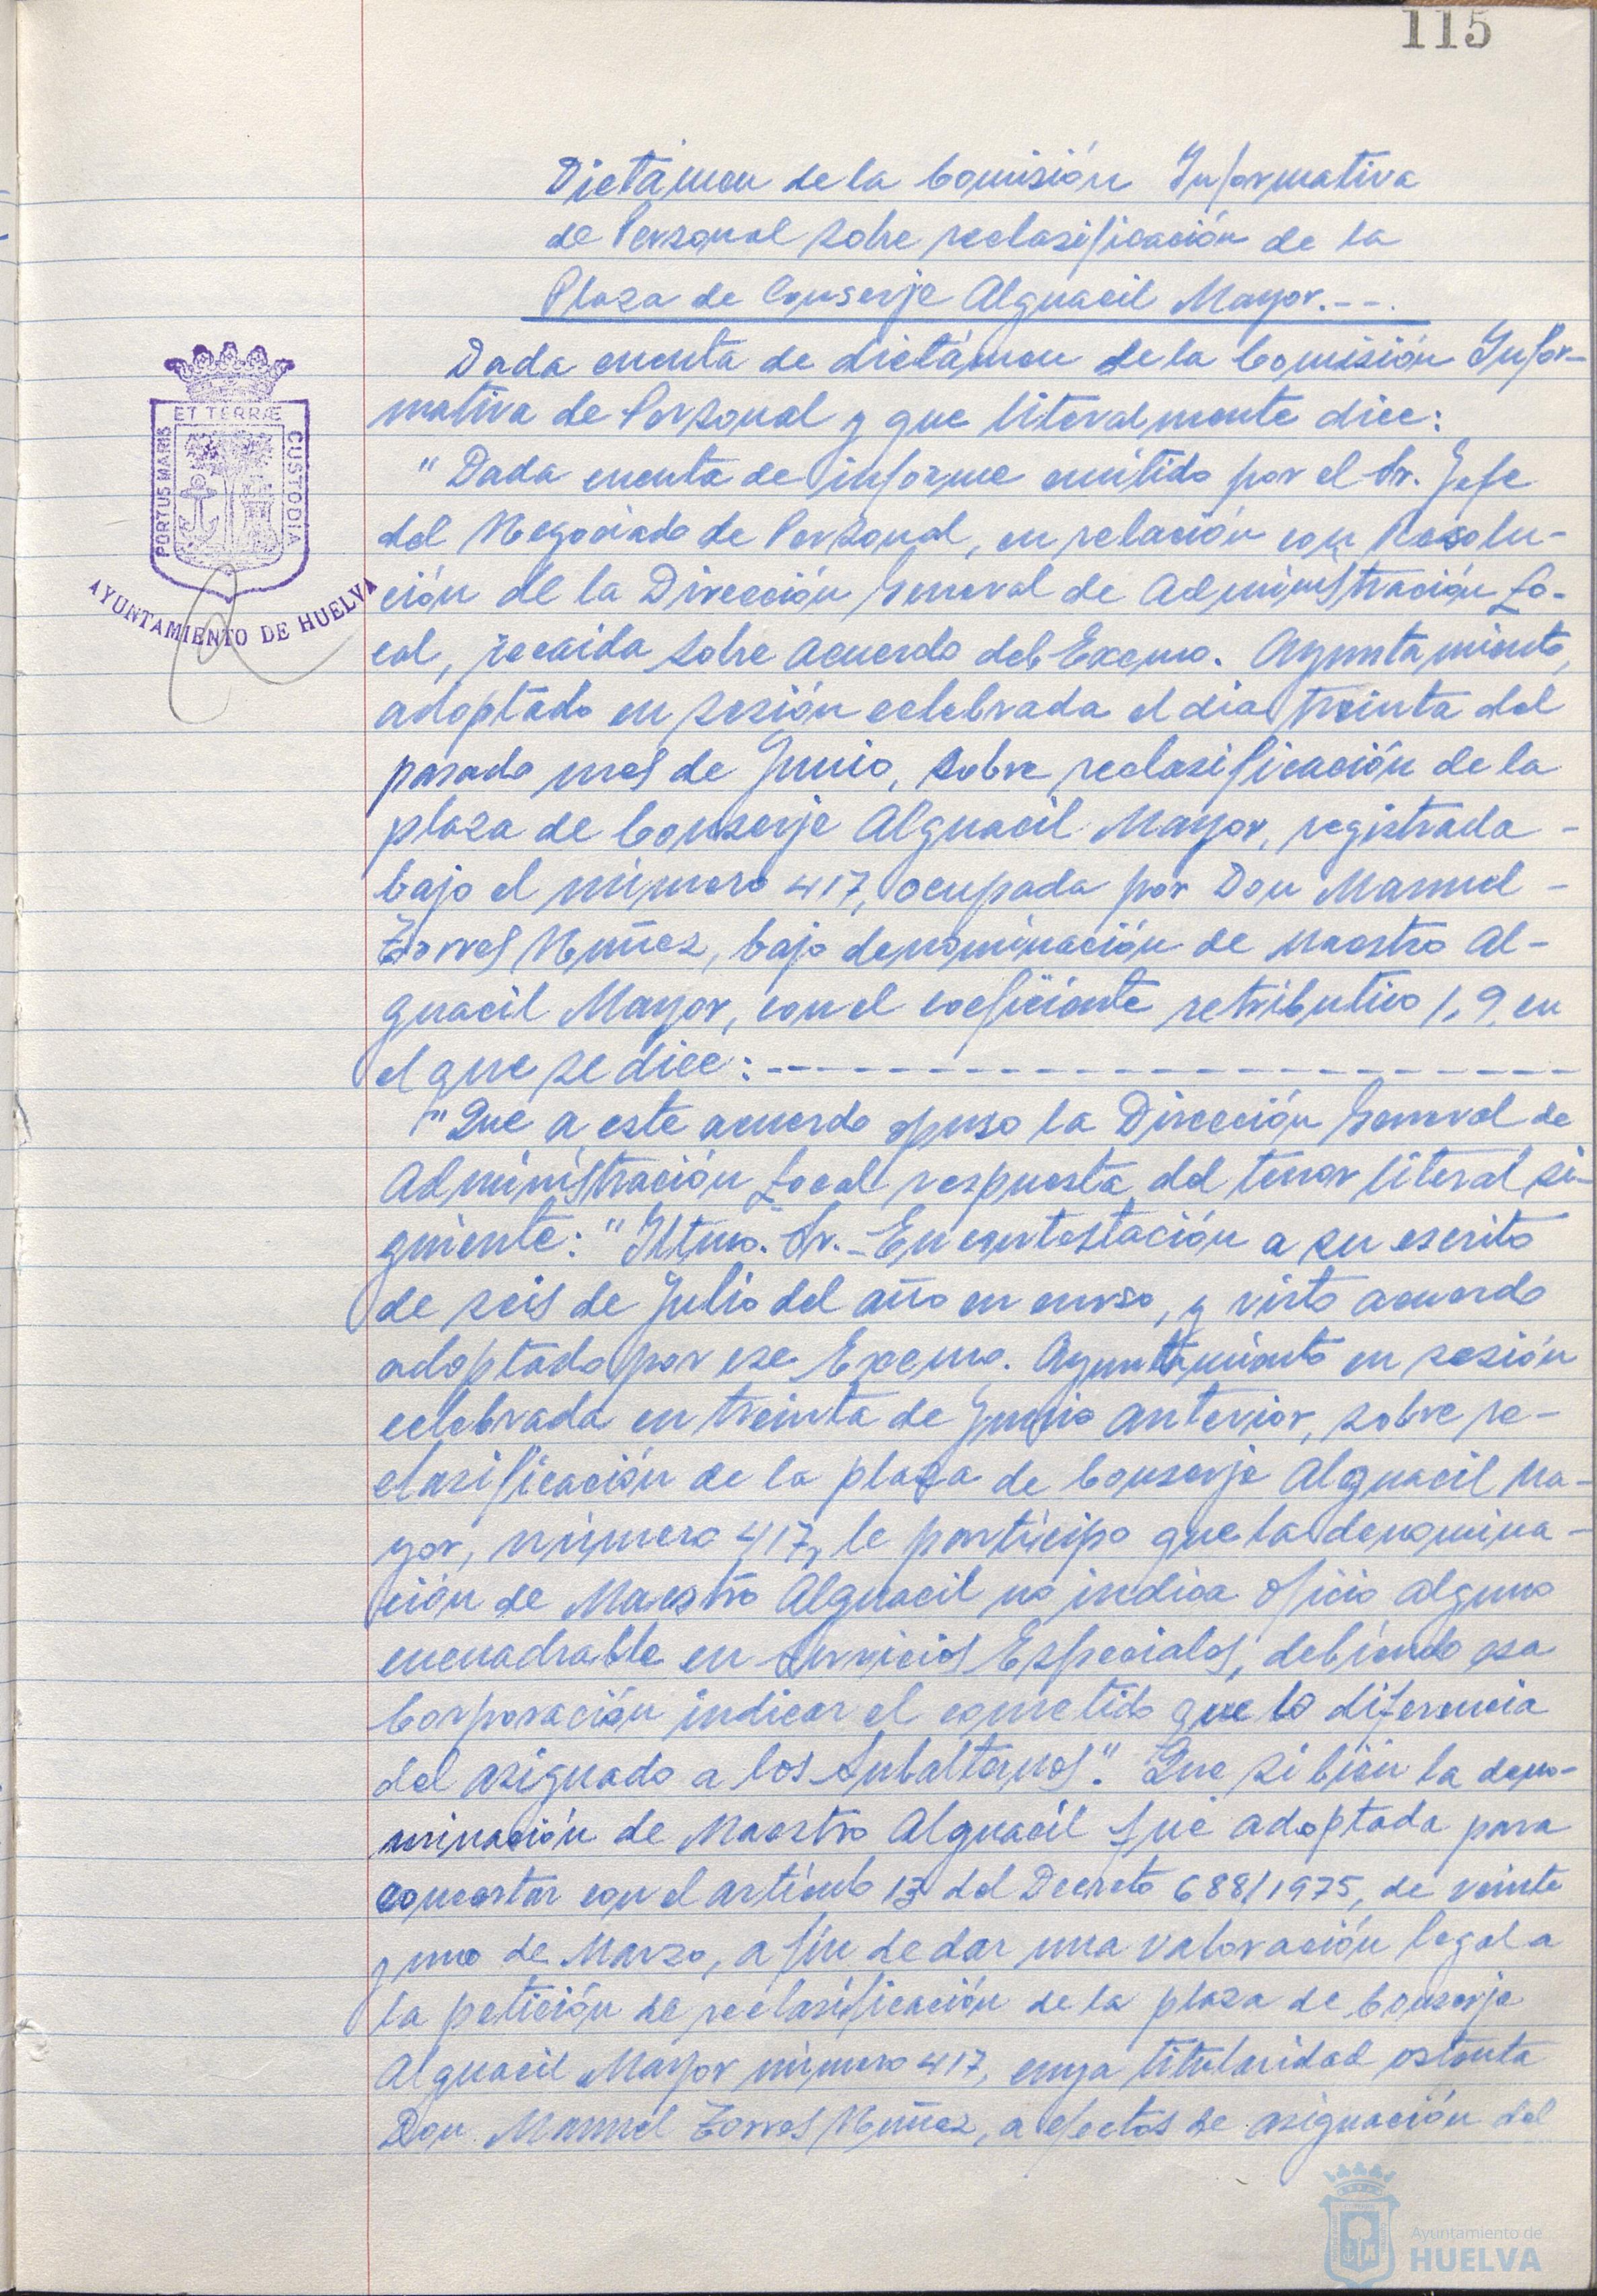 115
Dictámen de la Comisión Informativa
de Personal sobre reclasificación de la
Plaza de Conserje Alguacil Mayor.--.
Dada cuenta de dictámen de la Comisión Infor-
mativa de Personal y que literalmente dice:
"Dada cuenta de informe emitido por el Sr. Jefe
del Negociado de Personal, en relación con Resolu-
ción de la Dirección General de Administración Lo-
cal, recaida sobre acuerdo del Excmo. Ayuntamiento,
adoptado en sesión celebrada el dia treinta del
pasado mes de Junio, sobre reclasificación de la
plaza de Conserje Alguacil Mayor, registrada -
bajo el número 417, ocupada por Don Manuel -
Torres Nuñez, bajo denominación de Maestro Al-
guacil Mayor, con el coeficiente retributivo 1,9, en
el que se dice:------------------------
"Que a este acuerdo opuso la Dirección General de
Administración Local respuesta del tenor literal si-
guiente: "Iltmo. Sr.- En contestación a su escrito
de seis de Julio del año en curso, y visto acuerdo
adoptado por ese Excmo. Ayuntamiento en sesión
celebrada en treinta de Junio anterior, sobre re-
clasificación de la plaza de Conserje Alguacil Ma-
yor, número 417, le participo que la denomina-
ción de Maestro Alguacil no indica oficio alguno
encuadrable en Servicios Especiales, debiendo esa
Corporación indicar el cometido que lo diferencia
del asignado a los Subalternos". Que si bien la deno-
minación de Maestro Alguacil fué adoptada para
concertar con el artículo 13 del Decreto 688/1975, de veinte
y uno de Marzo, a fin de dar una valoración legal a
la petición de reclasificación de la plaza de Conserje
Alguacil Mayor número 417, cuya titularidad ostenta
Don Manuel Torres Nuñez, a efectos de asignación del
PORTUS MARIS
ET TERRÆ
CUSTODIA
AYUNTAMIENTO DE HUELVA
Ayuntamiento de
HUELVA